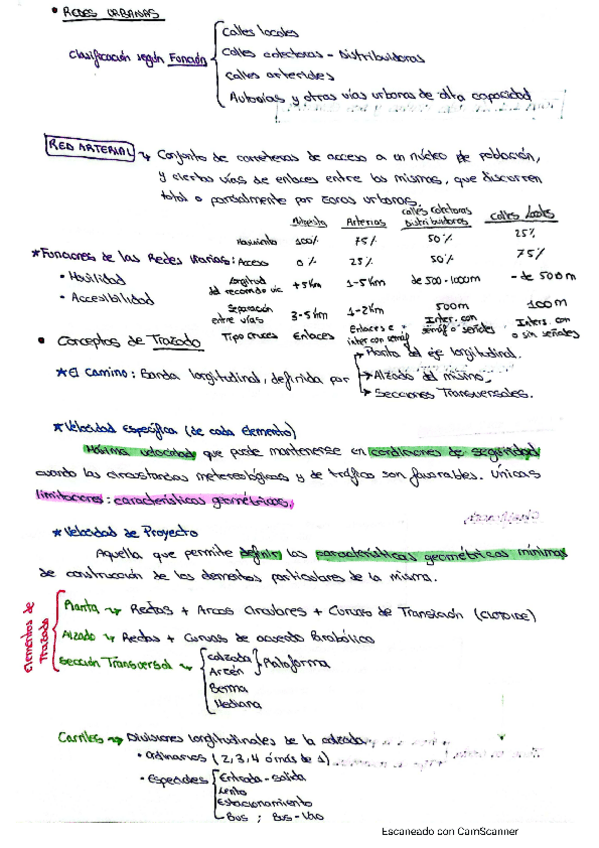 • REDES URBANAS
Clasificación según Función
Calles locales
Calles colectoras - Distribuidoras
Calles arteriales
Autovías y otras vías urbanas de alta capacidad
RED ARTERIAL → Conjunto de carreteras de acceso a un núcleo de población,
y ciertas vías de enlaces entre las mismas, que discurren
total o parcialmente por zonas urbanas.
Autopista Arterias calles colectoras distribuidoras calles locales
Movimiento 100% 75% 50% 25%
* Funciones de las Redes Viarias: Acceso 0% 25% 50% 75%
• Movilidad
• Accesibilidad
Longitud del recorrido vic +5Km 1-5Km de 500-1000m - de 500m
Separación entre vías 3-5Km 1-2Km 500m 100m
Tipo cruces Enlaces Enlaces e inter con semáf Inter. con semáf o señales Inters. con o sin señales
• Conceptos de Trazado
* El camino: Banda longitudinal, definida por
→ Planta del eje longitudinal.
→ Alzado del mismo.
→ Secciones Transversales.
* Velocidad específica (de cada elemento)
Máxima velocidad que puede mantenerse en condiciones de seguridad
cuando las circunstancias metereológicas y de tráfico son favorables. Únicas
limitaciones: características geométricas.
* Velocidad de Proyecto
Aquella que permite definir las características geométricas mínimas
de construcción de los elementos particulares de la misma.
Elementos de Trazado
Planta → Rectas + Arcos Circulares + Curvas de Transición (CLOTOIDE)
Alzado → Rectas + Curvas de acuerdo Parabólico
Sección Transversal →
Calzada
Arcén
Plataforma
Berma
Mediana
Carriles → Divisiones longitudinales de la calzada
• Ordinarios (2, 3, 4 ó más de 1)
• Especiales
Entrada - salida
Lento
Estacionamiento
Bus ; Bus - Vao
Escaneado con CamScanner